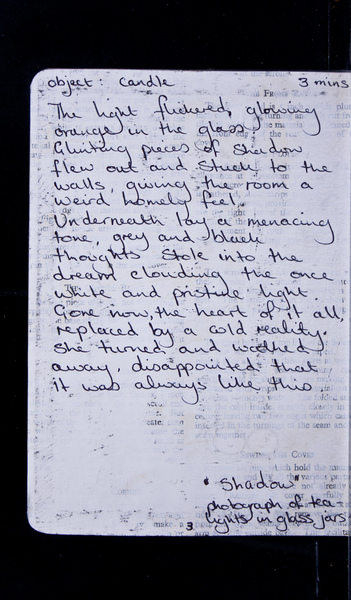 object: Candle 3 mins
The light flickered, glowing
orange in the glass.
Glinting pieces of shadow
flew out and stuck to the
walls, giving the room a
weird homely feel.
Underneath lay a menacing
tone, grey and black
thoughts stole into the
dream clouding the once
white and pristine light.
Gone now, the heart of it all,
replaced by a cold reality.
She turned and walked
away, disappointed that
it was always like this
"Shadow"
photograph of tea-
lights in glass jars
3